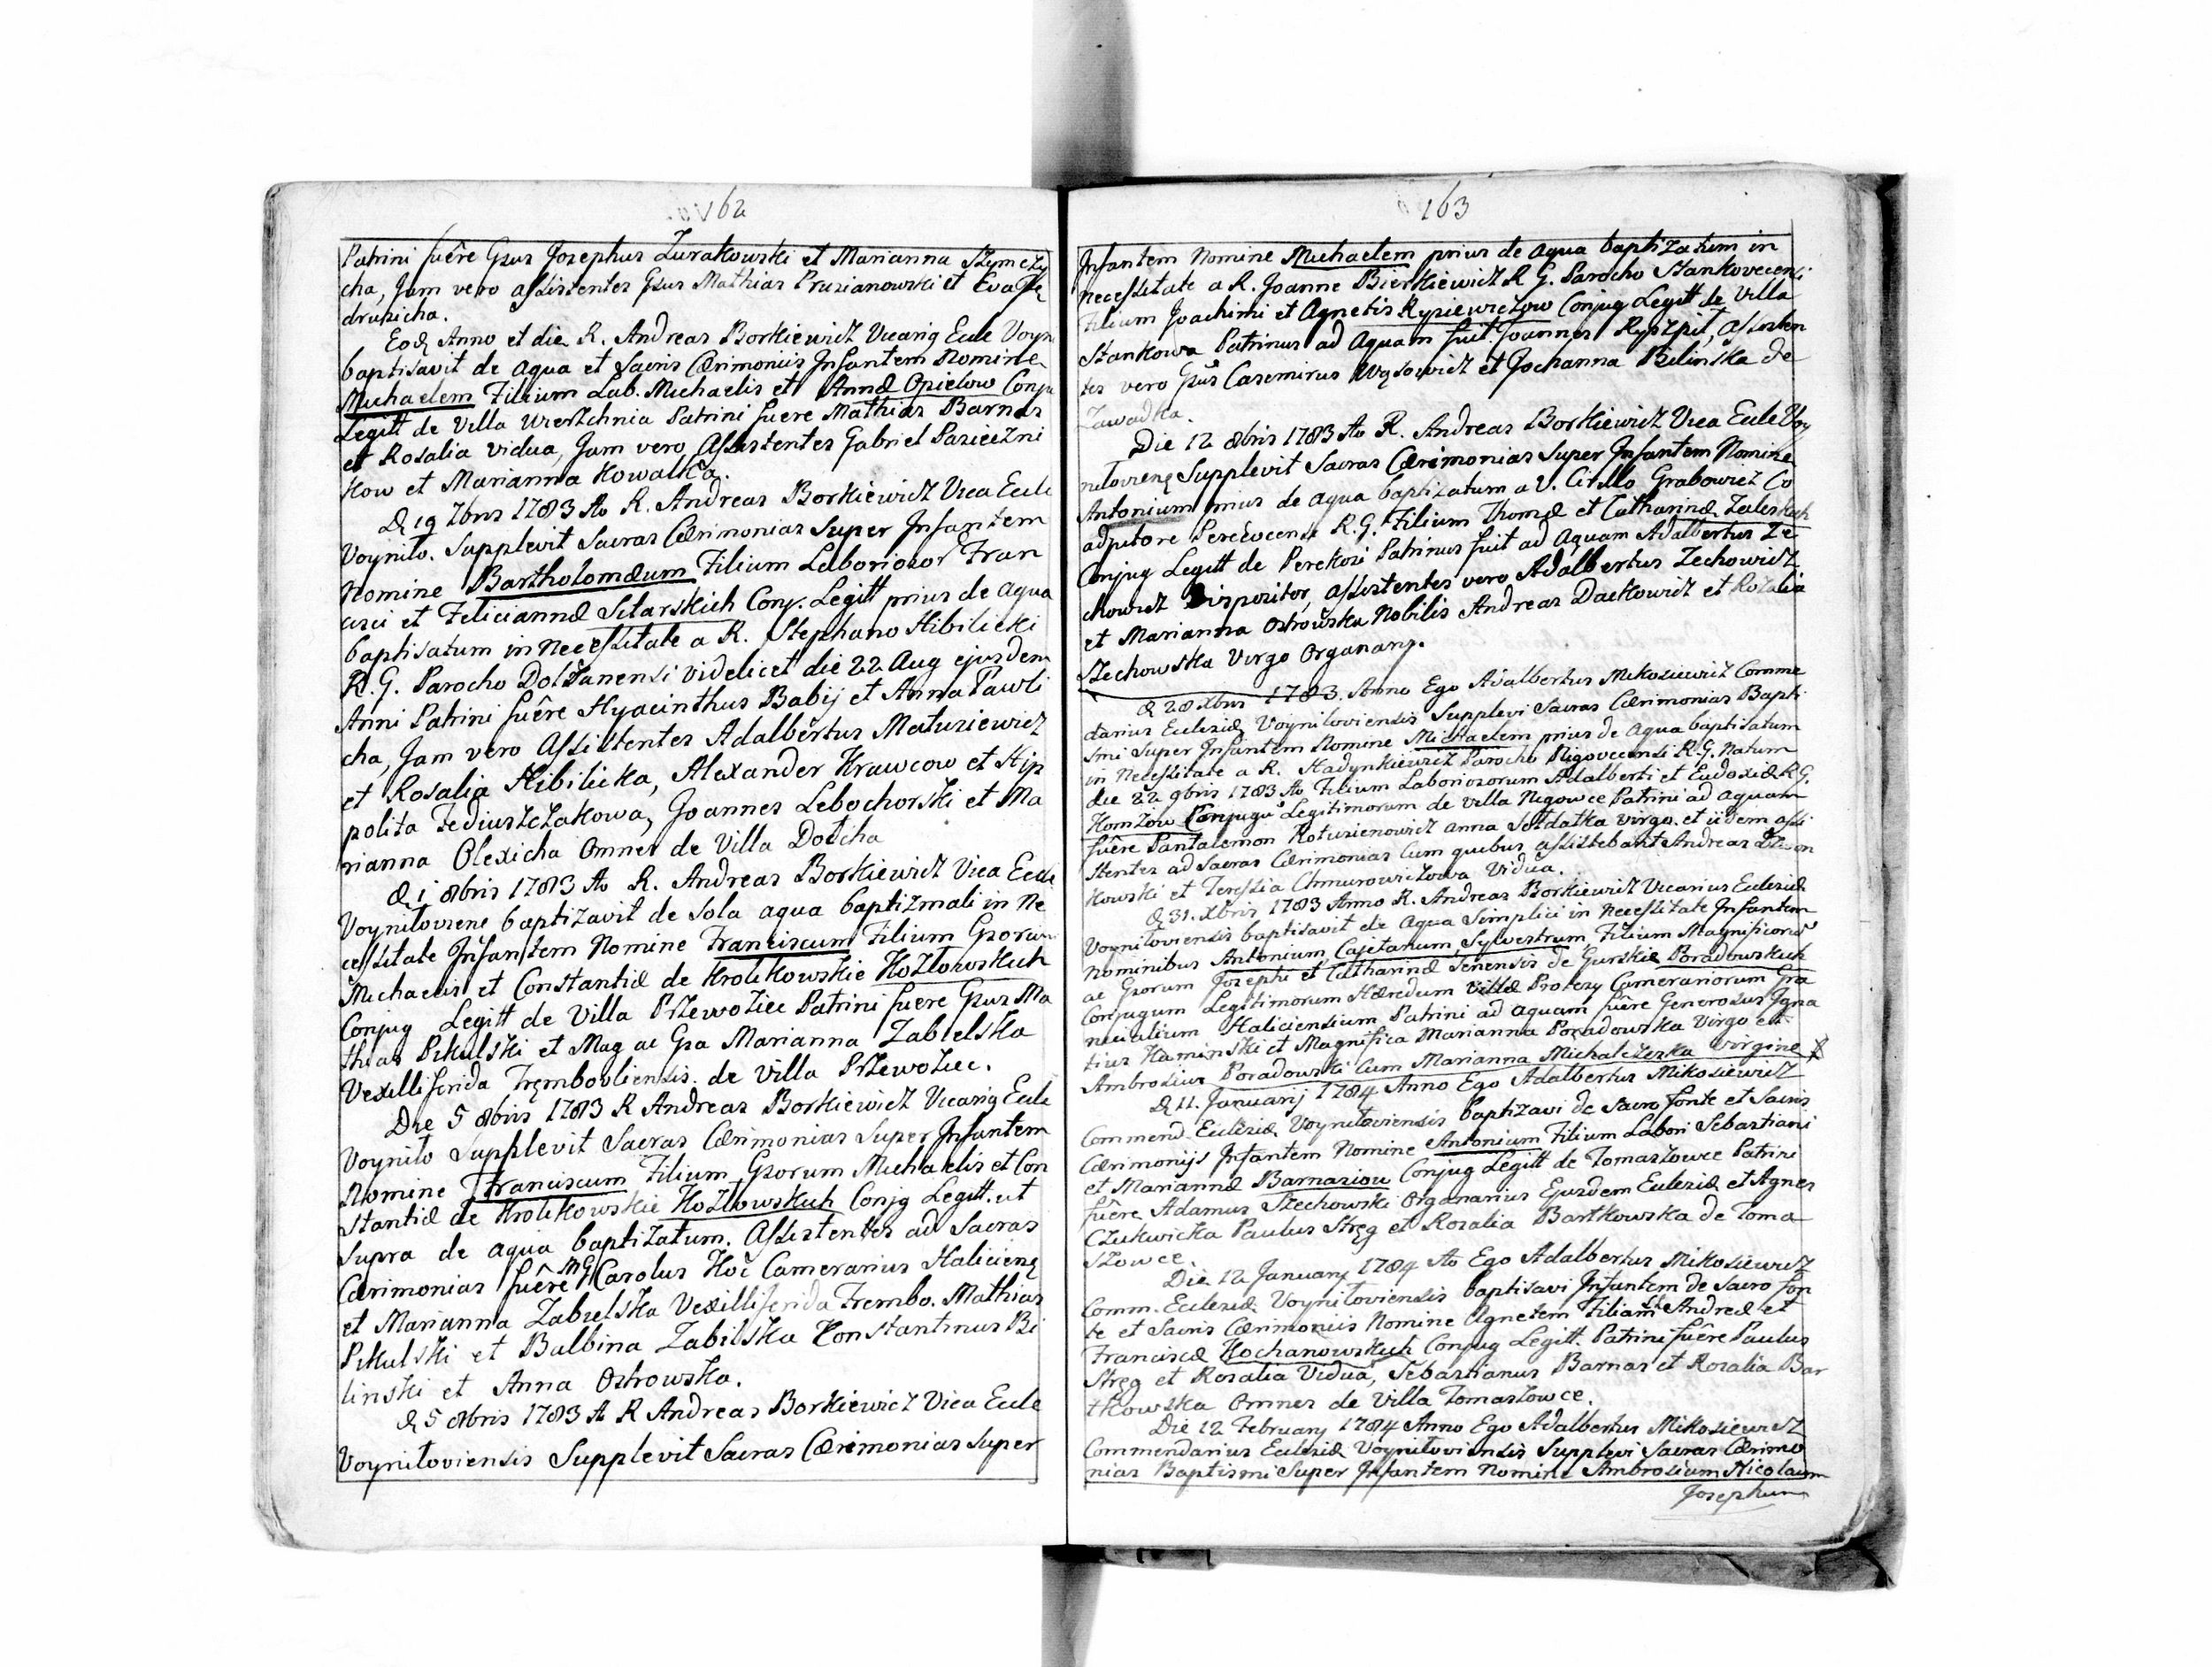 162
Patrini fuêre Gsus Josephus Zurakowski et Marianna Szymczy
cha, Jam vero assistentes Gsus Mathias Prusianowski et Eva Fe
druncha.
Eod Anno et die R. Andreas Borkiewicz Vicariq Eccle Voyn
baptisavit de aqua et sacris Cærimoniis Infantem Nomine
Michaelem Filium Lab. Michaelis et Annæ Opielow Conju
Legitt de Villa Wierzchnia Patrini fuere Mathias Barnas
et Rosalia vidua, Jam vero, Assistentes Gabriel Pasieczni
kow et Marianna Kowalka.
D 19 7bris 1783 Ao R. Andreas Borkiewicz Vica Eccle
Voynilo. Supplevit Sacras Cærimonias Super Infantem
Nomine Bartholomæum Filium Laboriosor Fran
cisci et Feliciannæ Sitarskich Conj. Legitt prius de aqua
baptisatum in Necessitate a R. Stephano Hibilicki
R. G. Parocho Dolzanensi videlicet die 22 Aug ejusdem
Anni Patrini fuêre Hyacinthus Babij et Anna Pawli
cha, Jam vero Assistentes Adalbertus Matusiewicz
et Rosalia Hibilicka, Alexander Krawcow et Hip
polita Fediuszczakowa, Joannes Lebochorski et Ma
rianna Olexicha Omnes de Villa Dolcha
D 1 8bris 1783 Ao R. Andreas Borkiewicz Vica Eccle
Voyniloviene baptizavit de sola aqua baptizmali in Ne
cessitate Infantem Nomine Franciscum Filium Gsorum
Michaelis et Constantiæ de Krolikowskie Kozlowskich
Conjug Legitt de Villa Przewoziec Patrini fuere Gsus Ma
thias Pikulski et Mag ac Gsa Marianna Zabielska
Vexilliferida Trembovliensis de Villa Przewoziec.
Die 5 8bris 1783 R Andreas Borkiewicz Vicariq Eccle
Voynilo Supplevit Sacras Cærimonias Super Infantem
Nomine Franciscum Filium Gsorum Michaelis et Con
stantiæ de Krolikowskie Kozlowskich Conjg Legitt. ut
supra de aqua baptizatum. Assistentes ad Sacras
Cærimonias fuêre MG Carolus Hoc Camerarius Halicienq
et Marianna Zabielska Vexilliferida Trembo. Mathias
Pikulski et Balbina Zabilska Constantinus Bi
linski et Anna Ostrowska.
D 5 8bris 1783 A R Andreas Borkiewicz Vica Eccle
Voyniloviensis Supplevit Sacras Cærimonias super
163
Infantem Nomine Michaelem prius de aqua baptizatum in
necessitate a R. Joanne Bierkiewicz R G. Parocho Stankovecensi
Filium Joachimi et Agnetis Rysiewiczow Conjug Legitt de Villa
Stankowa Patrinus ad Aquam fuit Joannes Ryszpit, Assisten
tes vero Gsus Casimirus Wąsowicz et Johanna Bilinska de
Zawadka.
Die 12 8bris 1783 Ao R. Andreas Borkiewicz Vica Eccle Voy
nilovienq Supplevit Sacras Cærimonias Super Infantem Nomine
Antonium prius de aqua baptizatum a V. Cirillo Grabowicz Co
adjutore Perekocensi R.G. Filium Thomæ et Catharinæ Zaleskich
Conjug Legitt de Perekosi Patrinus fuit ad Aquam Adalbertus Ze
chowicz Dispositor, assistentes vero Adalbertus Zechowicz
et Marianna Ostrowska Nobilis Andreas Dackowicz et Rozalia
Szechowska Virgo Organarq.
D 28 Xbris 1783. Anno Ego Adalbertus Mikosiewicz Comme
darius Ecclesiæ Voyniloviensis Supplevi Sacras Cærimonias Bapti
smi Super Infantem Nomine Michaelem prius de Aqua baptisatum
in Necessitate a R. Hadynkiewicz Parocho Nigovecensi R.G. Natum
die 22 9bris 1783 Ao Filium Laboriosorum Adalberti et Eudoxiæ R G.
Homzow Conjugu Legitimorum de villa Negowce Patrini ad aquam
fuêre Pantalemon Kotusienowicz anna Soldatka virgo. et iidem assi
stentes ad Sacras Cærimonias Cum quibus assistebant Andreas
kowski et Teressia Chmurowiczowa Vidua.
D 31. Xbris 1783 Anno R. Andreas Borkiewicz Vicarius Ecclesiæ
Voyniloviensis baptisavit de Aqua Simplici in Necessitate Infantem
Nominibus Antonium, Cajetanum, Sylvestrum, Filium Magnificoru
ac Gsorum Josephi et Catharinæ Senensis de Gurskie Poradowskich
Conjugum Legitimorum Hæredum Villæ Protesy Camerariorum Gra
nicialium Haliciensium Patrini ad aquam fuêre Generosus Igna
tius Kaminski et Magnifica Marianna Poradowska Virgo et
Ambrosius Poradowski Cum Marianna Michalczezka Virgine
D 11. Januarij 1784 Anno Ego Adalbertus Mikosiewicz
Commend Ecclesiæ Voyniloviensis baptizavi de Sacro fonte et Sacris
Cærimonijs Infantem Nomine Antonium Filium Labori Sebastiani
et Mariannæ Barnasiow Conjug Legitt de Tomaszowce Patrini
fuêre Adamus Szechowski Organarius Ejusdem Ecclesiæ et Agnes
Czukwicka Paulus Stręg et Rosalia Bartkowska de Toma
szowce.
Die 12 Januarij 1784 Ao Ego Adalbertus Mikosiewicz
Comm. Ecclesiæ Voyniloviensis baptisavi Infantem de Sacro fon
te et Sacris Cærimoniis Nomine Agnetem Filiam Andreæ et
Franciscæ Kochanowskich Conjug Legitt. Patrini fuêre Paulus
Stręg et Rosalia Vidua, Sebastianus Barnas et Rosalia Bar
tkowska Omnes de Villa Tomaszowce.
Die 12 Februarij 1784 Anno Ego Adalbertus Mikosiewicz
Commendarius Ecclesiæ Voyniloviensis Supplevi Sacras Cærimo
nias Baptismi Super Infantem Nomine Ambrosium Nicolaum
Josephum